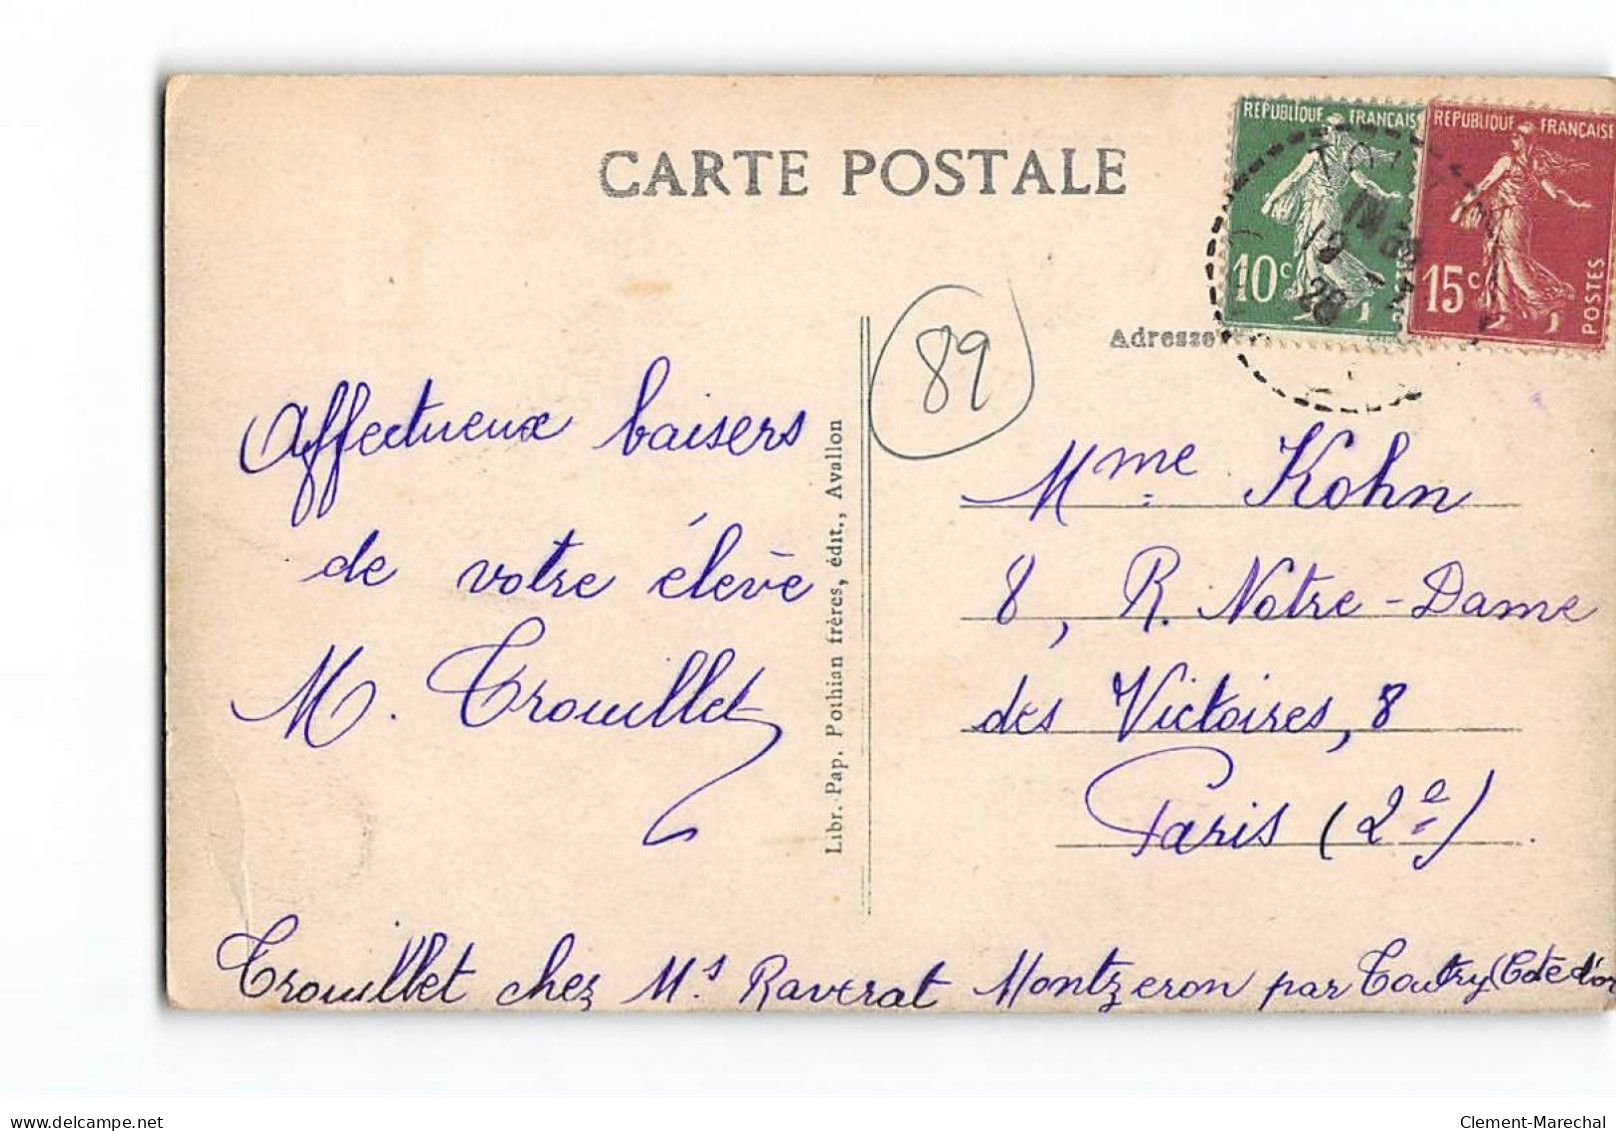 CARTE POSTALE
REPUBLIQUE FRANCAISE
10c
REPUBLIQUE FRANCAISE
15c
POSTES
Adresse
89
Affectueux baisers
de votre élève
M. Trouillet
Libr.-Pap. Pothian frères, édit., Avallon
Mme Kohn
8, R. Notre-Dame
des Victoires, 8
Paris (2e)
Trouillet chez Ms Raverat Montzeron par Toutry (Cote d'or
delcampe.net
Clement-Marechal